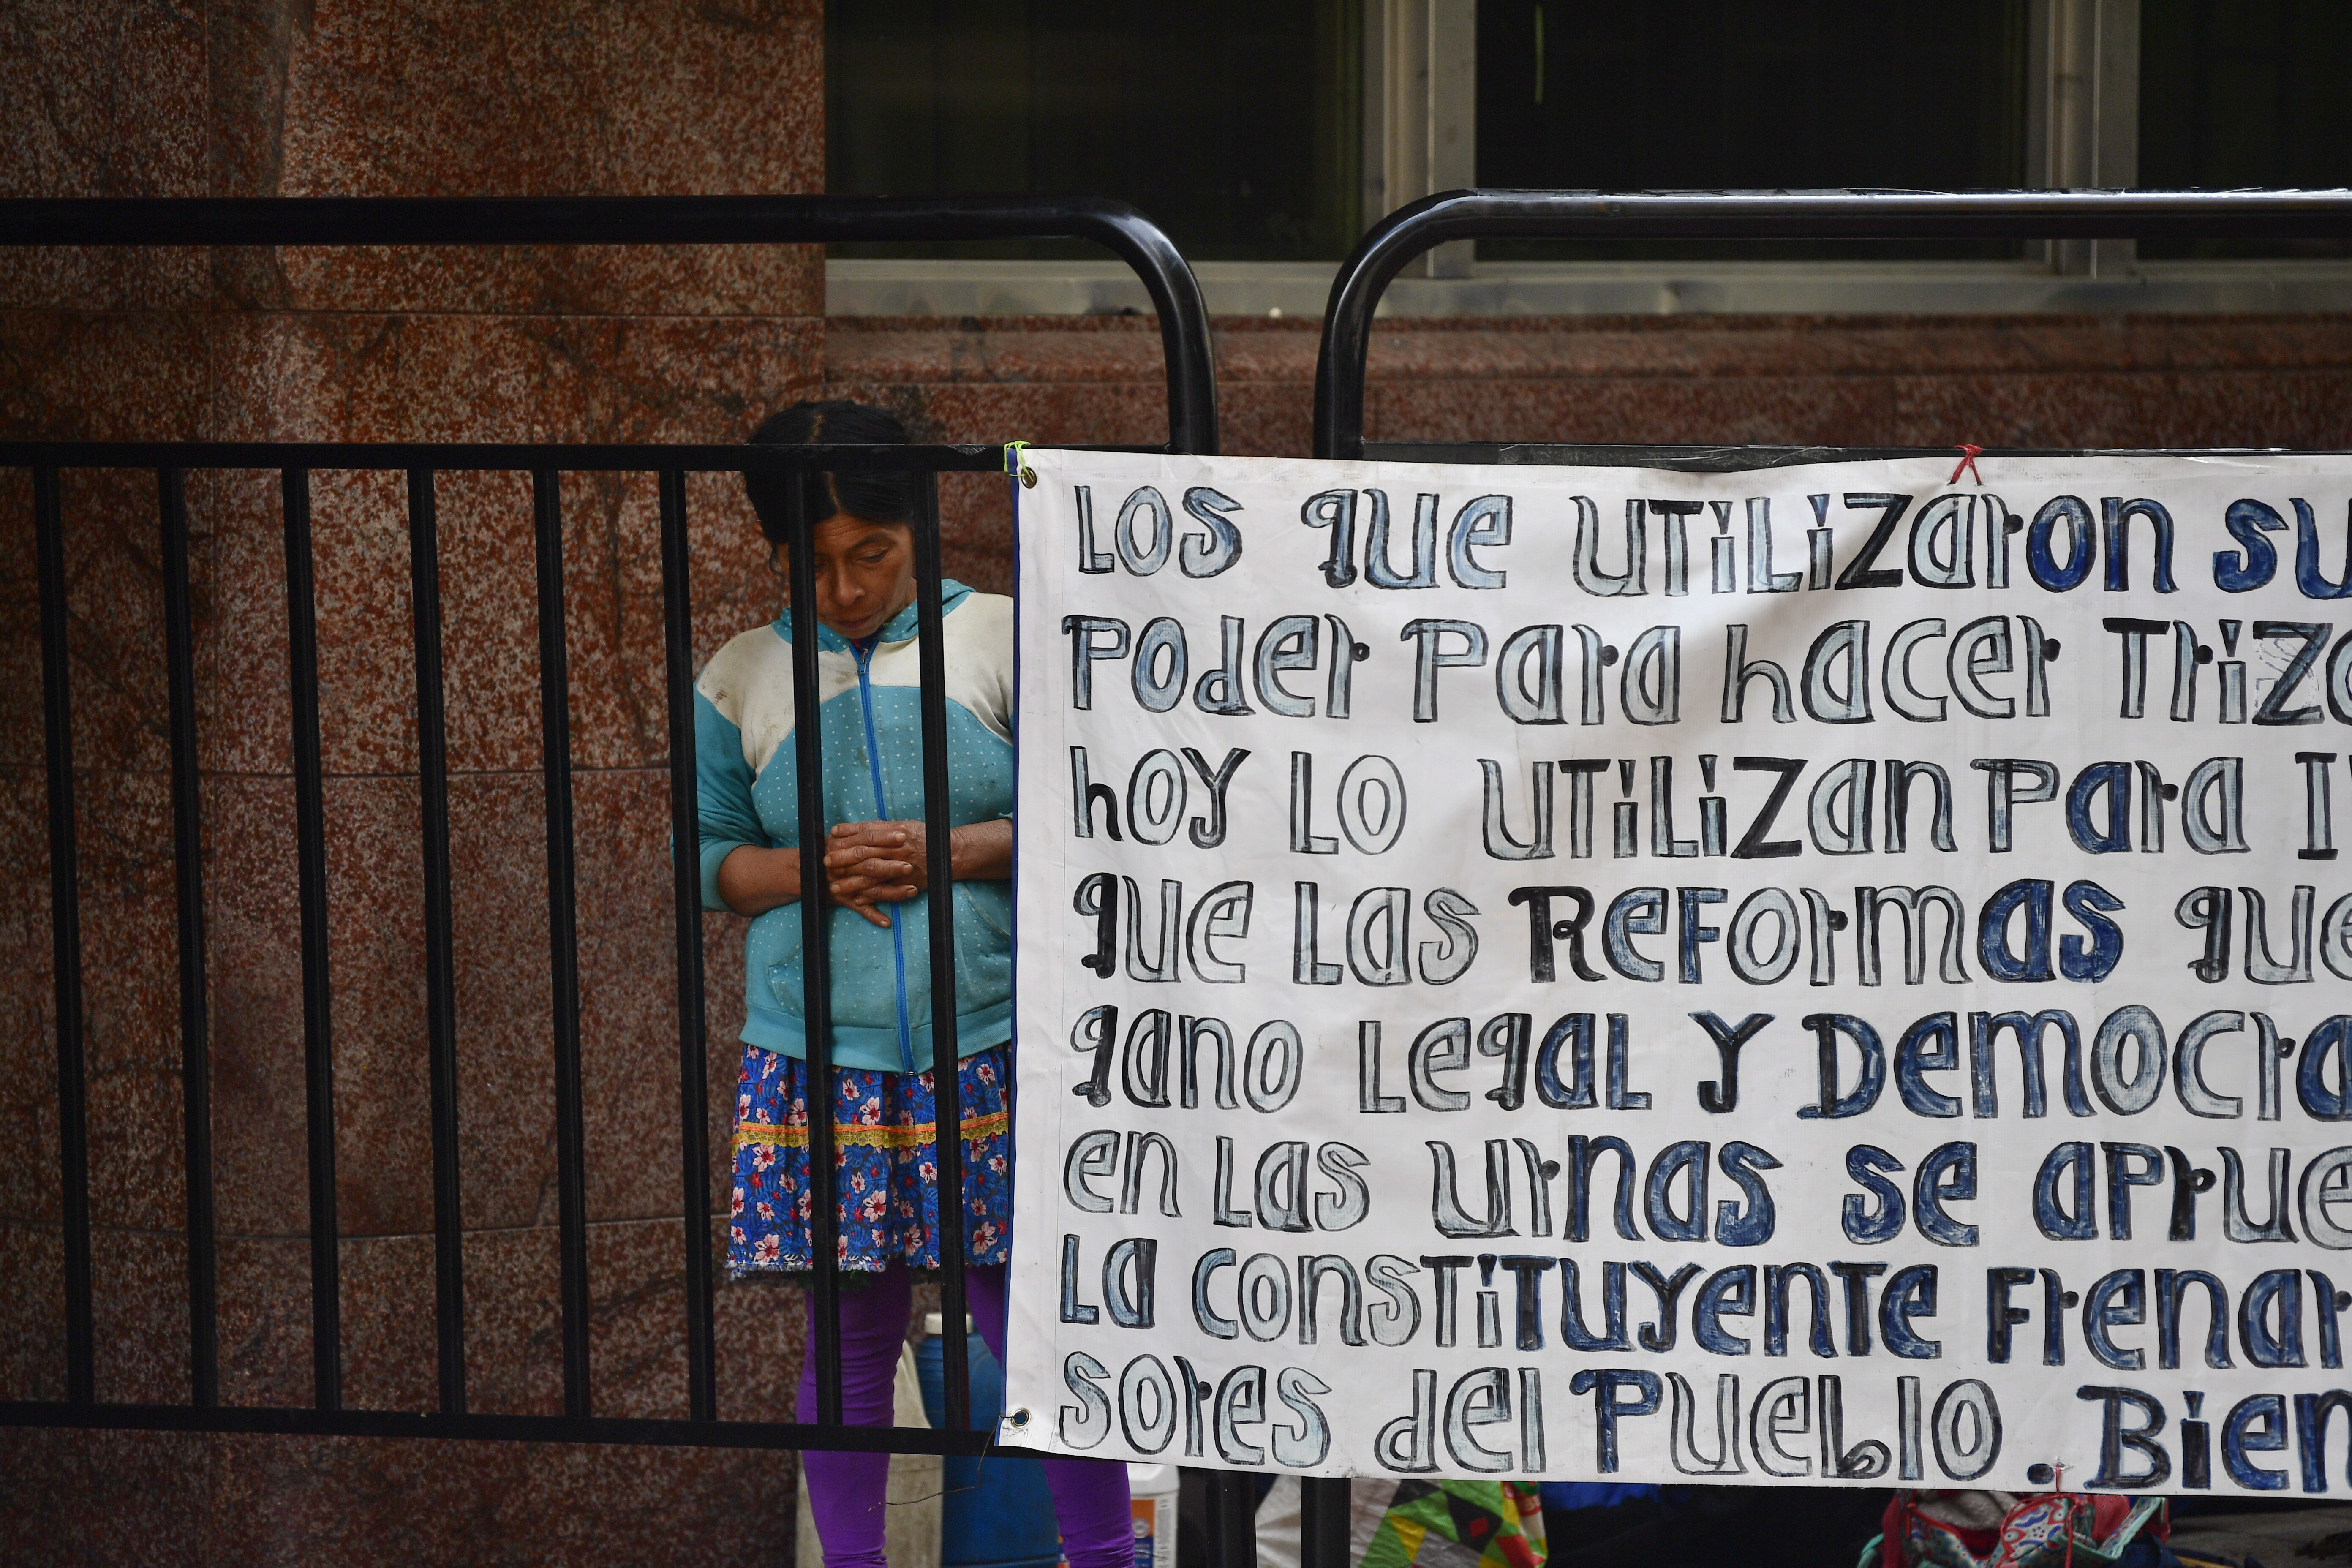 Los que utilizaron su
poder para hacer
hoy lo utilizan para
que las Reformas que
gano Legal y
en las urnas se
La constituyente
sores del Pueblo. Bien